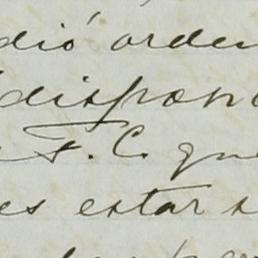 dió orden
dispon
F. C. que
es estar